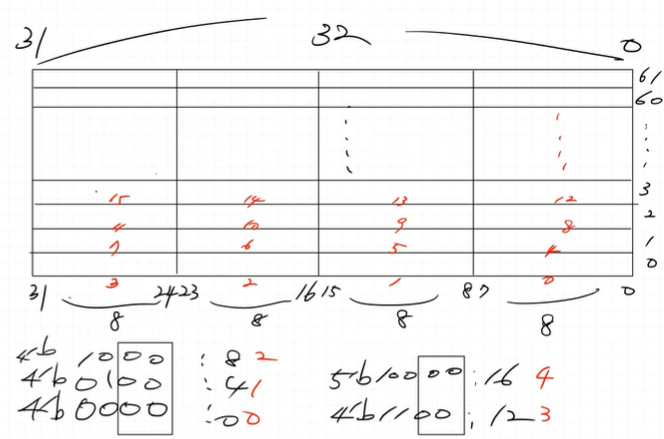 31 32 0
61
60
3
15 14 13 12 2
11 10 9 8 1
7 6 5 4 0
3 2 1 0
31 24 23 16 15 8 7 0
8 8 8 8
4b 1000 : 8 2
4b 0100 : 4 1
4b 0000 : 0 0
5b 10000 : 16 4
4b 1100 : 12 3